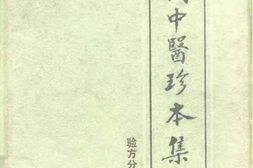 中醫珍本集
验方分